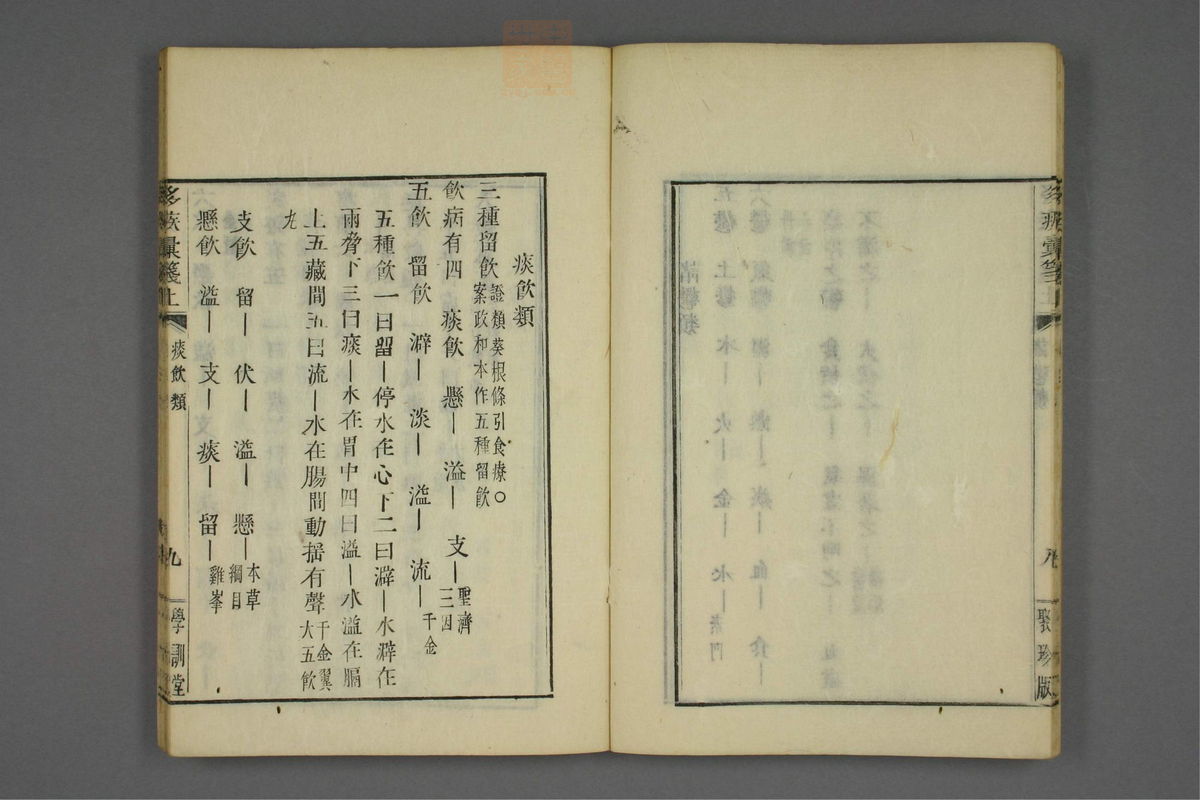 聚珍版
痰飲類
三種留飲 證類葵根條引食療○
案政和本作五種留飲
飲病有四 痰飲 懸｜ 溢｜ 支｜ 聖濟
三因
五飲 留飲 澼｜ 淡｜ 溢｜ 流｜ 千金
五種飲一曰留｜停水在心下二曰澼｜水澼在
兩脅下三曰痰｜水在胃中四曰溢｜水溢在膈
上五藏間五曰流｜水在腸間動搖有聲 千金翼
大五飲
丸
支飲 留｜ 伏｜ 溢｜ 懸｜ 本草
綱目
懸飲 溢｜ 支｜ 痰｜ 留｜ 雞峯
彙箋上 痰飲類 九 學訓堂